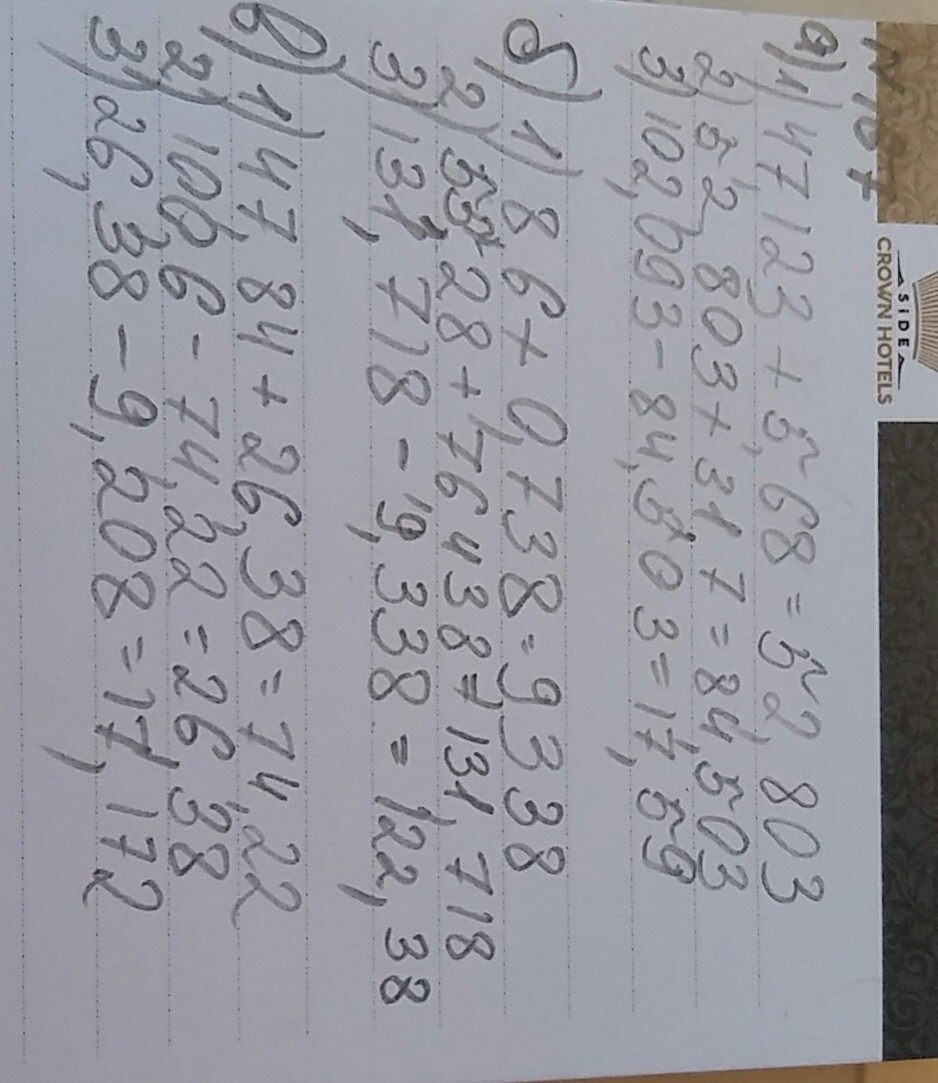 SIDE
CROWN HOTELS
N 167
а) 1) 47,123 + 5,68 = 52,803
2) 52,803 + 31,7 = 84,503
3) 102,093 - 84,503 = 17,59
б) 1) 8,6 + 0,738 = 9,338
2) 55,28 + 76,438 = 131,718
3) 131,718 - 9,338 = 122,38
в) 1) 47,84 + 26,38 = 74,22
2) 100,6 - 74,22 = 26,38
3) 26,38 - 9,208 = 17,172